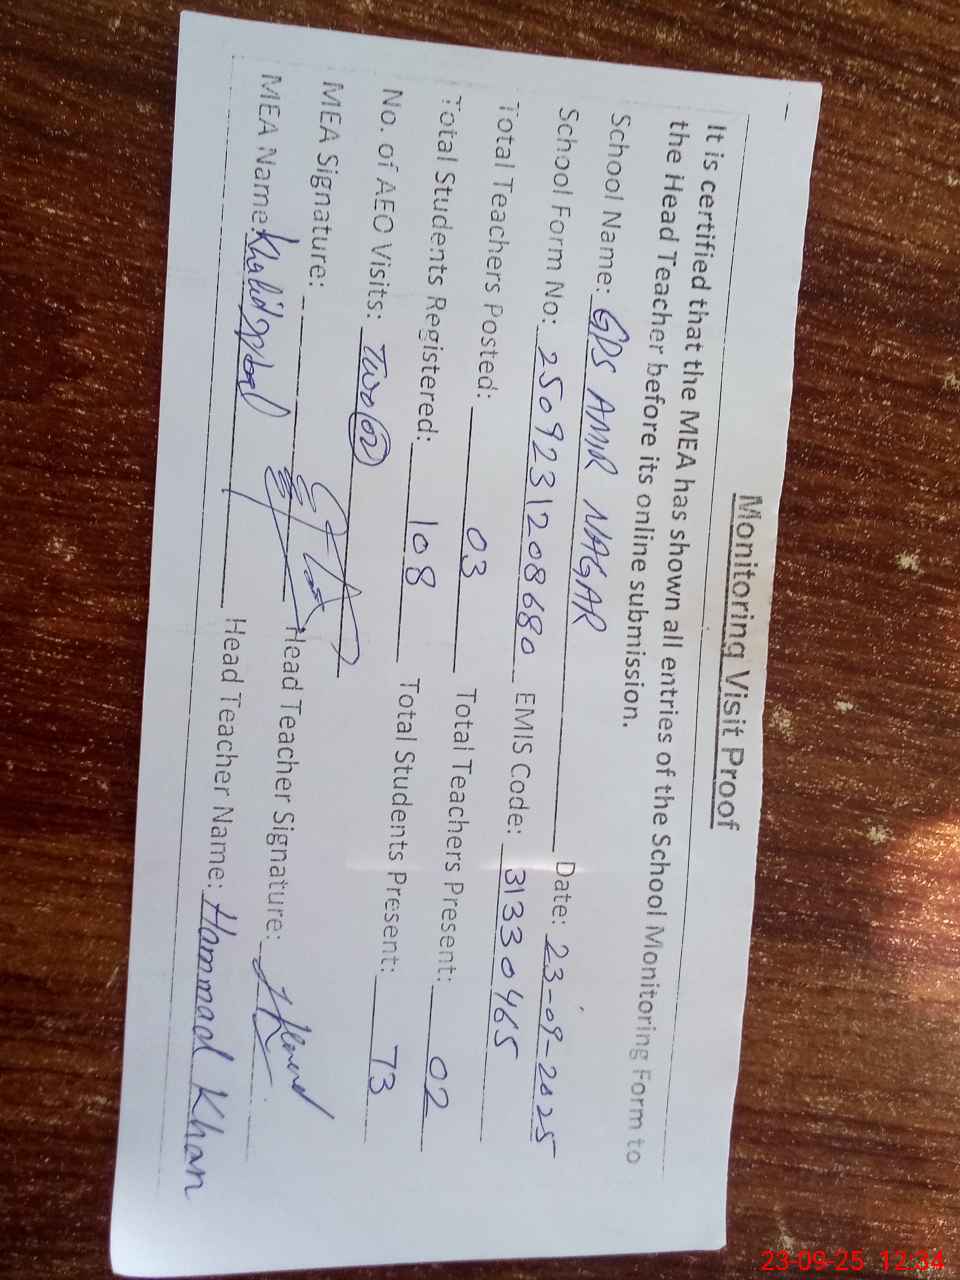 Monitoring Visit Proof
It is certified that the MEA has shown all entries of the School Monitoring Form to
the Head Teacher before its online submission.
School Name: GPS AMIR NAGAR Date: 23-09-2025
School Form No: 2509231208680 EMIS Code: 31330465
Total Teachers Posted: 03 Total Teachers Present: 02
Total Students Registered: 108 Total Students Present: 73
No. of AEO Visits: Two (02)
MEA Signature: Head Teacher Signature:
MEA Name: Khalid Iqbal Head Teacher Name: Hammad Khan
23-09-25 12:34